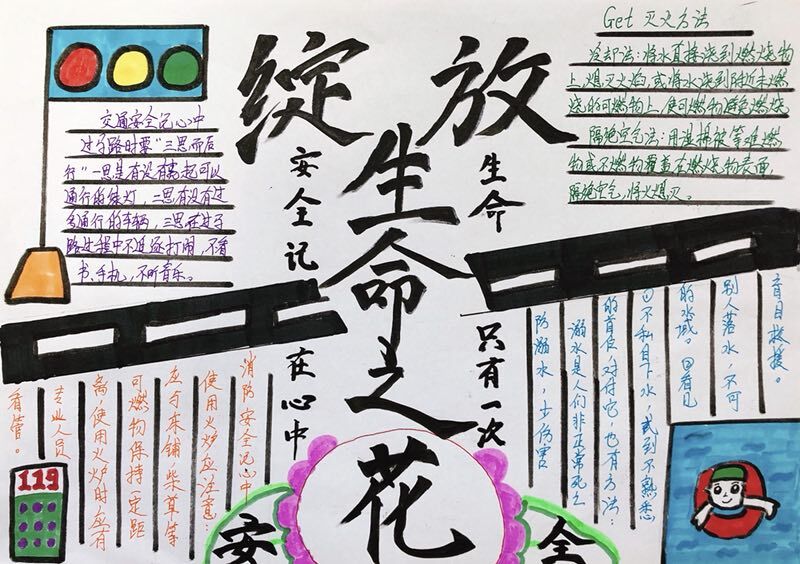 绽放
生命之花
安全记在心中
生命只有一次
交通安全记心中
过马路时要“三思而后
行”一思是有没有亮起可以
通行的绿灯，二思有没有过
路过程中不追逐打闹，不看
书、手机，不听音乐。
Get 灭火方法
冷却法：将水直接浇到燃烧物
上，熄灭火焰，或将水浇到附近未燃
烧的可燃物上，使可燃物避免燃烧
隔绝空气法：用湿棉被等难燃
物或不燃物覆盖在燃烧物表面
隔绝空气，将火熄灭。
消防安全记心中
使用火炉应注意：
应与床铺，柴草等
可燃物保持一定距
离，使用火炉时应有
专业人员
看管。
防溺水，少伤害
溺水是人们非正常死亡
的首位，对付它，也有方法：
①不私自下水，或到不熟悉
的水域。②看见
别人落水，不可
盲目救援。
119
安全